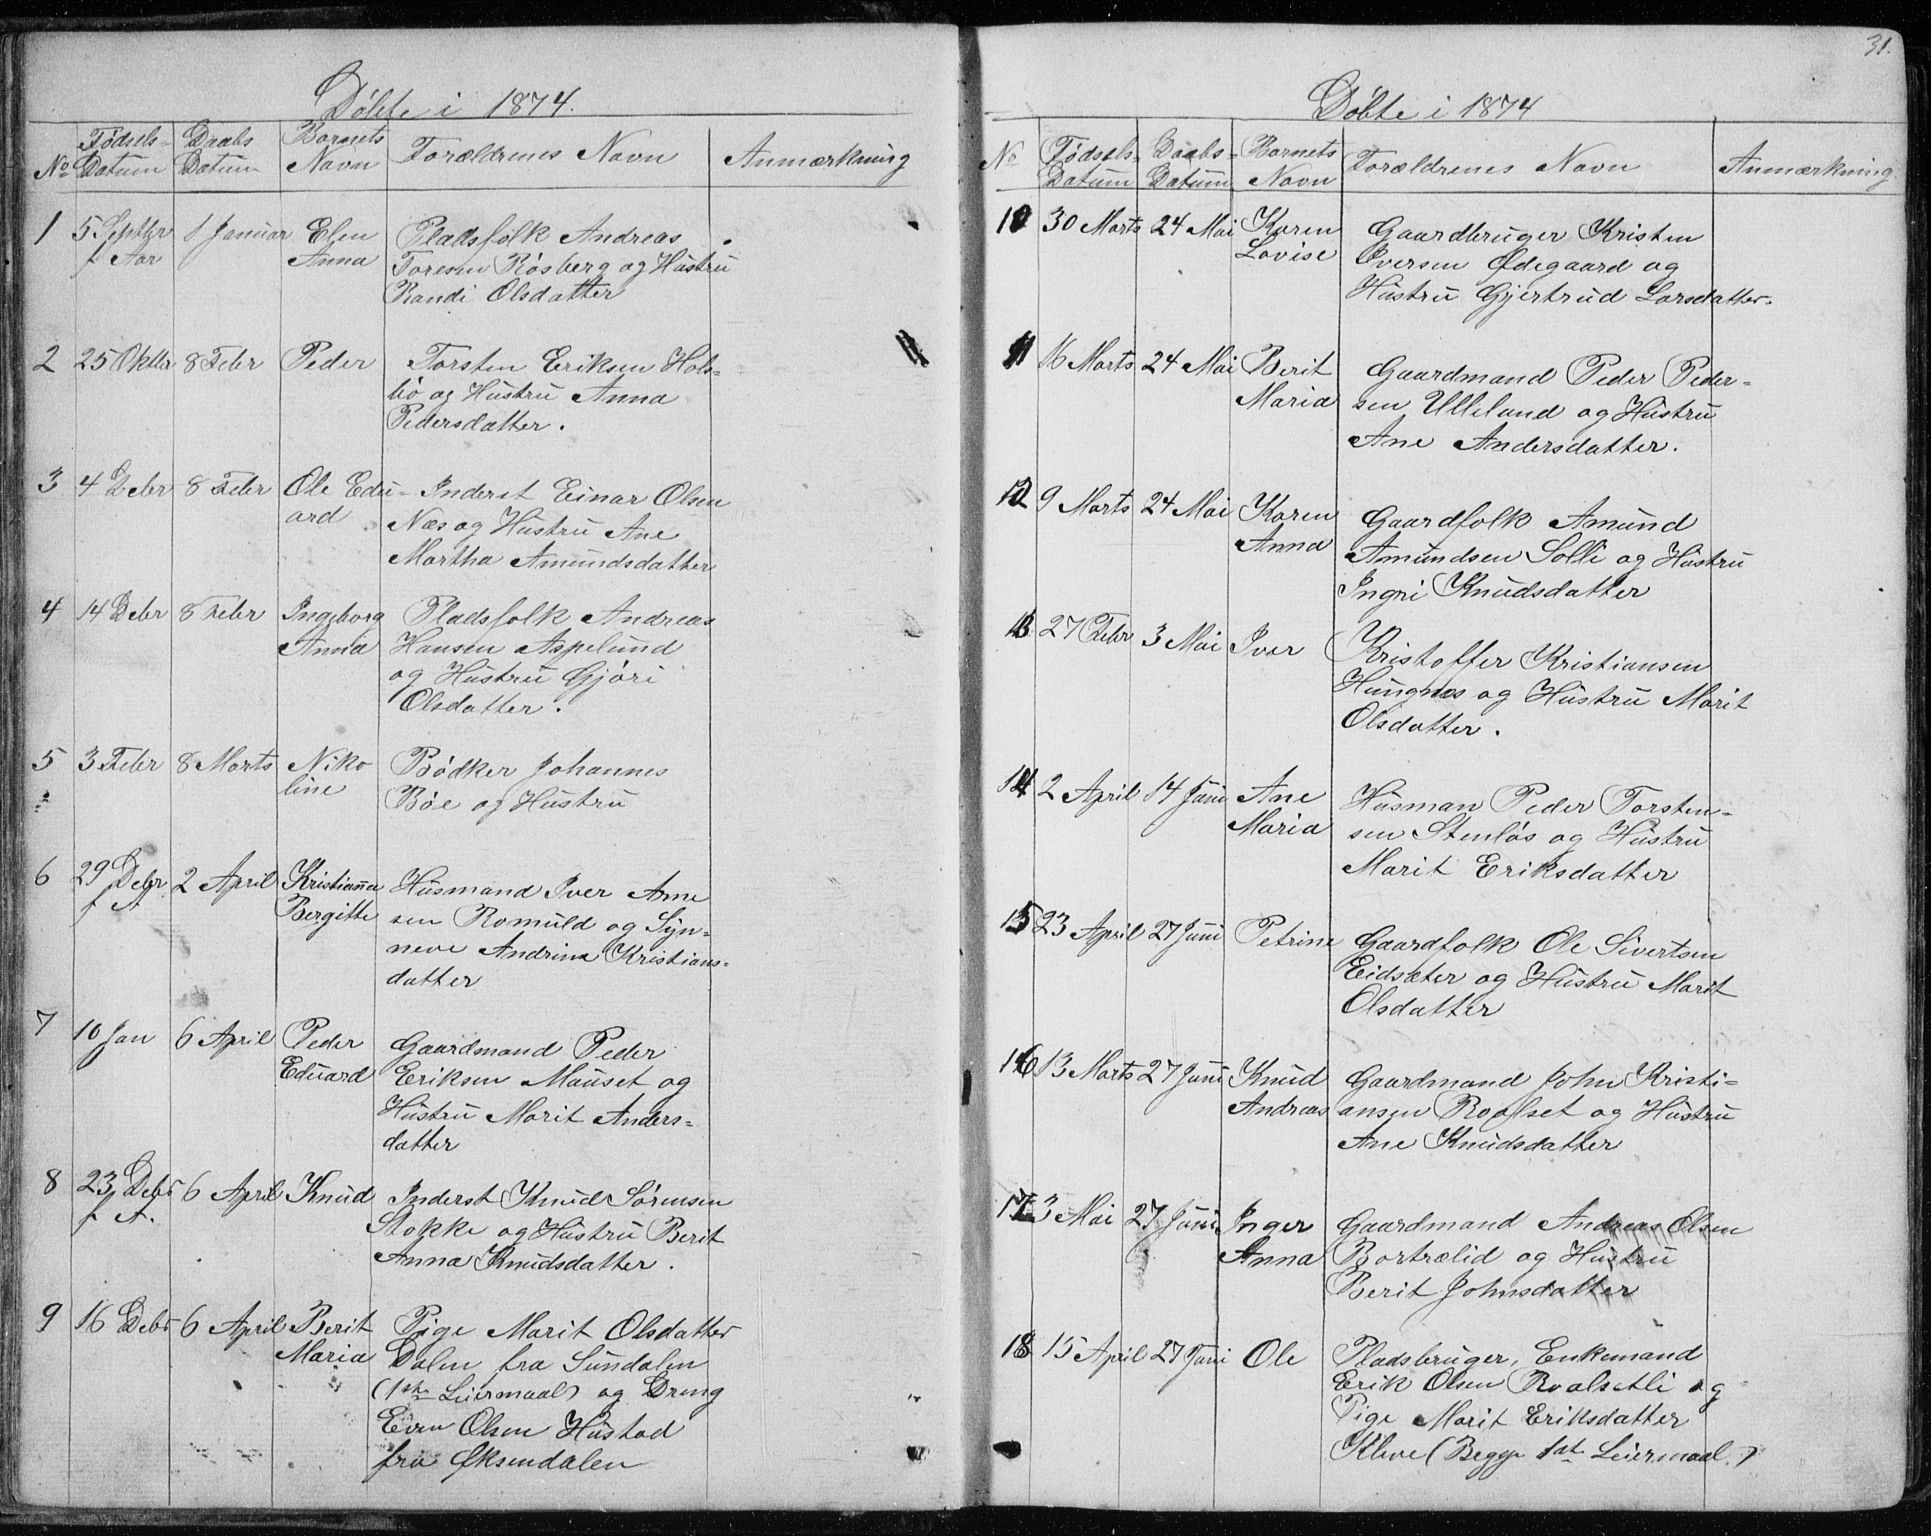 Døbte i 1874.
No Fødsels-Datum Daabs Datum Barnets Navn Forældrenes Navn Anmærkning
1 5 Septbr 1 Januar Elen Pladsfolk Andreas
f Aar Anna Toresen Røsberg og Hustru
Randi Olsdatter
2 25 Oktbr 8 Febr Peder Torsten Eriksen Hols-
bø og Hustru Anna
Pedersdatter.
3 4 Debr 8 Febr Ole Edu- Inderst Einar Olsen
ard Næs og Hustru Ane
Martha Amundsdatter
4 14 Debr 8 Febr Ingeborg Pladsfolk Andreas
Anna Hansen Aspelund
og Hustru Gjøri
Olsdatter.
5 3 Febr 8 Marts Niko Bødker Johannes
line Bøe og Hustru
6 29 Debr 2 April Kristianna Husmand Iver Arne
f A. Bergitte sen Romuld og Syn-
neve Andrina Kristians-
datter
7 10 Jan 6 April Peder Gaardmand Peder
Eduard Eriksen Mauset og
Hustru Marit Anders-
datter
8 23 Debr 6 April Knud Inderst Knud Sørensen
f A. Stokke og Hustru Berit
Anna Knudsdatter.
9 16 Debr 6 April Berit Pige Marit Olsdatter
Maria Dalen fra Sundalen
(1ste Leiermaal) og Dreng
Even Olsen Hustad
fra Øksendalen
31.
Døbte i 1874
No Fødsels-Datum Daabs-Datum Barnets Navn Forældrenes Navn Anmærkning
10 30 Marts 24 Mai Karen Gaardbruger Kristen
Lovise Iversen Ødegaard og
Hustru Gjertrud Larsdatter.
11 16 Marts 24 Mai Berit Gaardmand Peder Peder-
Maria sen Ulleland og Hustru
Ane Andersdatter.
12 9 Marts 24 Mai Karen Gaardfolk Amund
Anna Amundsen Solli og Hustru
Ingri Knudsdatter
13 27 Febr 3 Mai Iver Kristoffer Kristiansen
Hungnes og Hustru Marit
Olsdatter.
14 2 April 14 Juni Ane Husman Peder Torsten-
Maria sen Stenløs og Hustru
Marit Eriksdatter
15 23 April 27 Juni Petrine Gaardfolk Ole Sivertsen
Eidsæter og Hustru Marit
Olsdatter
16 13 Marts 27 Juni Knud Gaardmand John Kristi-
Andreas ansen Roalset og Hustru
Ane Knudsdatter
17 3 Mai 27 Juni Inger Gaardmand Andreas Olsen
Anna Bortrælid og Hustru
Berit Johnsdatter
18 15 April 27 Juni Ole Pladsbruger, Enkemand
Erik Olsen Roalsetli og
Pige Marit Eriksdatter
Kleve (Begge 1st Leiermaal.)